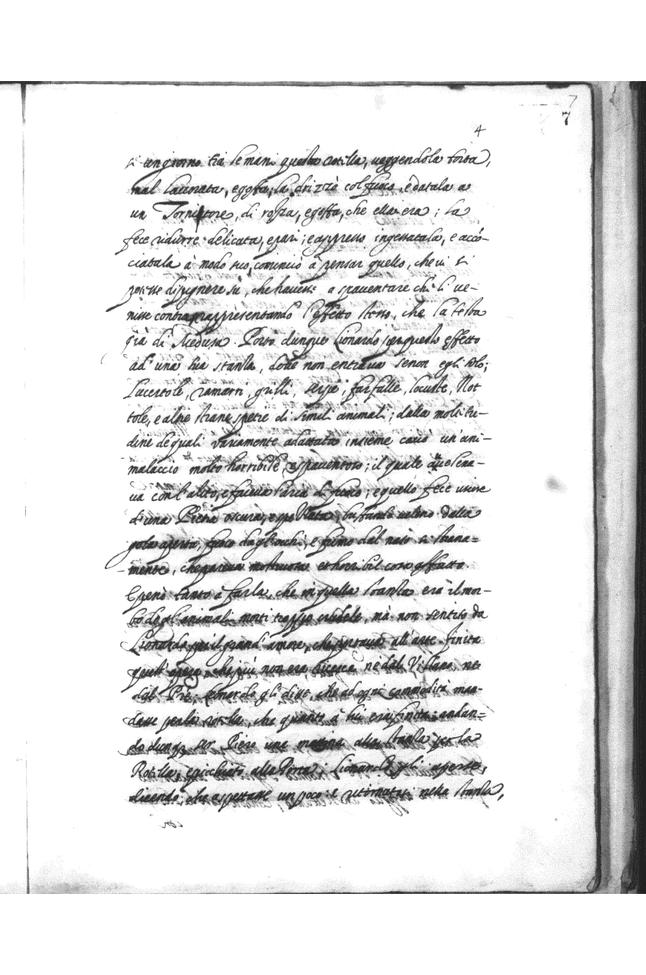 7
4
7
un giorno tra le mani questa rotella, veggendola torta,
mal lavorata, e goffa, la drizzò col fuoco, e datala a
un Tornitore, di rozza, e goffa, che ella era; la
fece ridurre delicata, e pari; e appresso ingessatala, e accó-
ciatala à modo suo, cominciò à pensar quello, che vi si
potesse dipignere sù, che havesse a spaventare chi li ve-
nisse contra, rappresentando l'effetto stesso, che la testa
già di Medusa. Portò dunque Lionardo per questo effetto
ad una sua stanza, dove non entrava senon egli solo;
Lucertole, ramarri, grilli, serpe, farfalle, locuste, Not
tole, e altre strane spetie di simili animali; dalla moltitu-
dine de quali variamente adattata insieme cavò un'ani-
malaccio molto horribile, e spaventoso; il quale avelena-
va con l'alito, e faceva l'aria di fuoco; e quello fece uscire
d'una Pietra oscura, e spezzata, buffando veleno dalla
gola aperta, fuoco dagl'occhi, e fumo dal naso si strana-
mente, che pareva mostruosa et horribil cosa affatto
E penò tanto a farla, che in quella stanza era il mor-
bo degl'animali morti troppo crudele, mà non sentito da
Lionardo per il grande amore, che portava all'arte. finita
quest'opera, che più non era ricerca ne dal Villano, ne
dal Prē; Lionardo gli disse, che ad ogni commodità man-
dasse per la rotella, che quanto à lui era finita: andan-
do dunq; ser Piero una matina alla stanza per la
Rotella, e picchiato alla Porta; Lionardo gli aperse,
dicendo, che aspettasse un poco: e ritornato nella stanza,